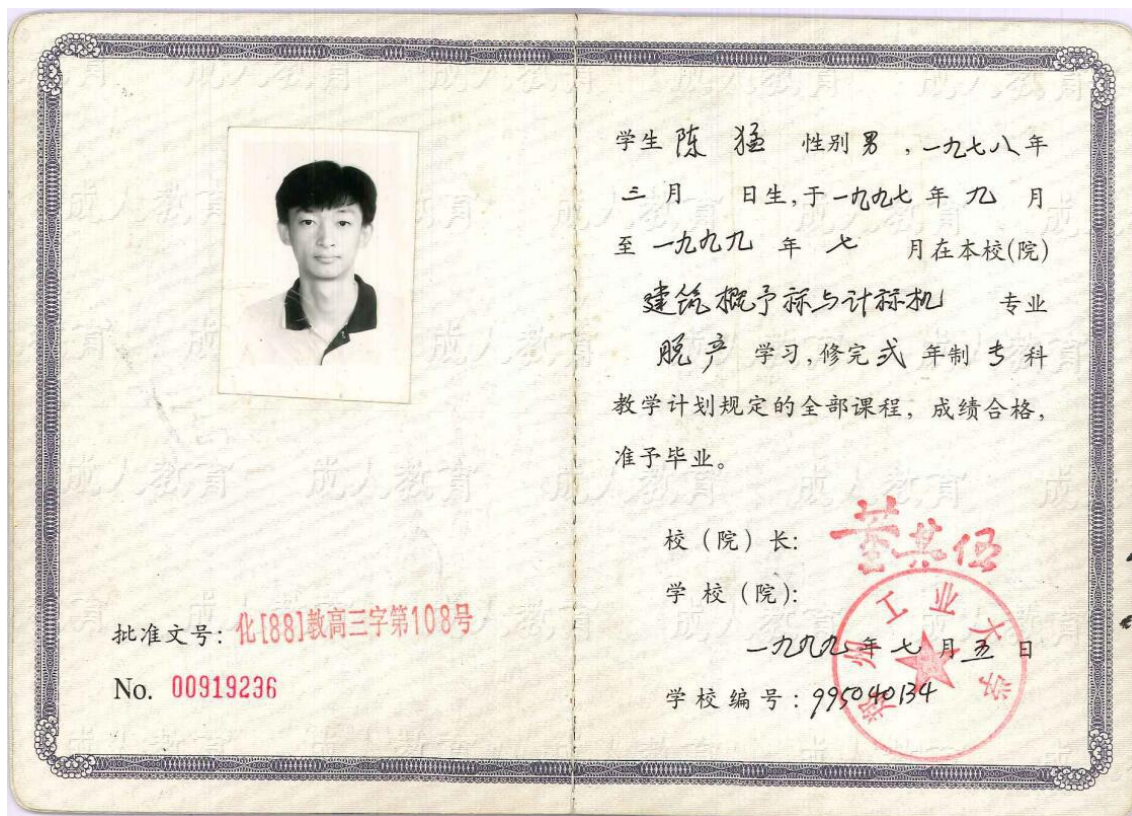 批准文号: 化[88]教高三字第108号
No. 00919236
学生 陈猛 性别 男 ,一九七八年
三月 日生,于一九九七年九月
至一九九九年七月在本校(院)
建筑概予祘与计祘机 专业
脱产 学习,修完弍年制专科
教学计划规定的全部课程,成绩合格,
准予毕业。
校(院)长: 董其伍
学校(院):
郑州工业大学
一九九九年七月五日
学校编号: 995040134
成人教育